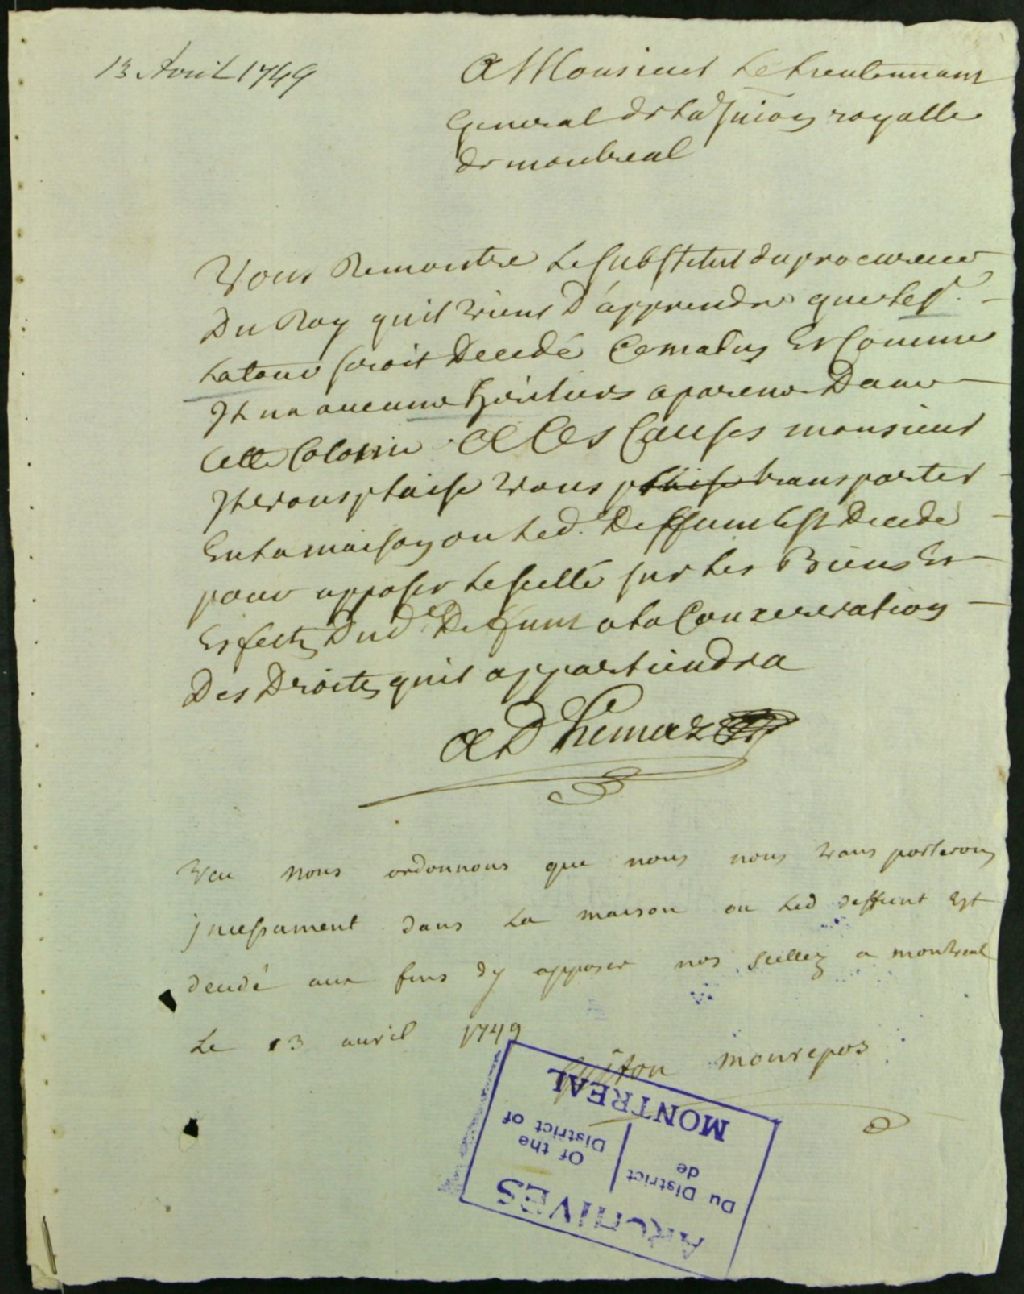 13 Avril 1749
A Monsieur Le Lieutennant
General de la Juridion royalle
de montreal
Vous Remontre Le Substitut du procureur
Du Roy quil vient D'apprendre que le Sr.
Latour seroit Decedé Ce matin Et Comme
Il n a aucuns heritiers aparens Dans
Cette Colonie A Ces Causes monsieur
Il vous plaise vous plaise transporter
En la maison ou led. Deffunt Est Decedé
pour apposer le scellé sur les Biens Et
Effects Dud. Deffunt a la Conservation
Des Droits quil appartiendra
A Dhemar
Veu nous ordonnons que nous nous transporterons
incessament dans la maison ou led deffunt Est
decedé aux fins dy apposer nos scellez a montreal
Le 13 avril 1749
Guiton monrepos
ARCHIVES
Du District
de
Of the
District of
MONTREAL